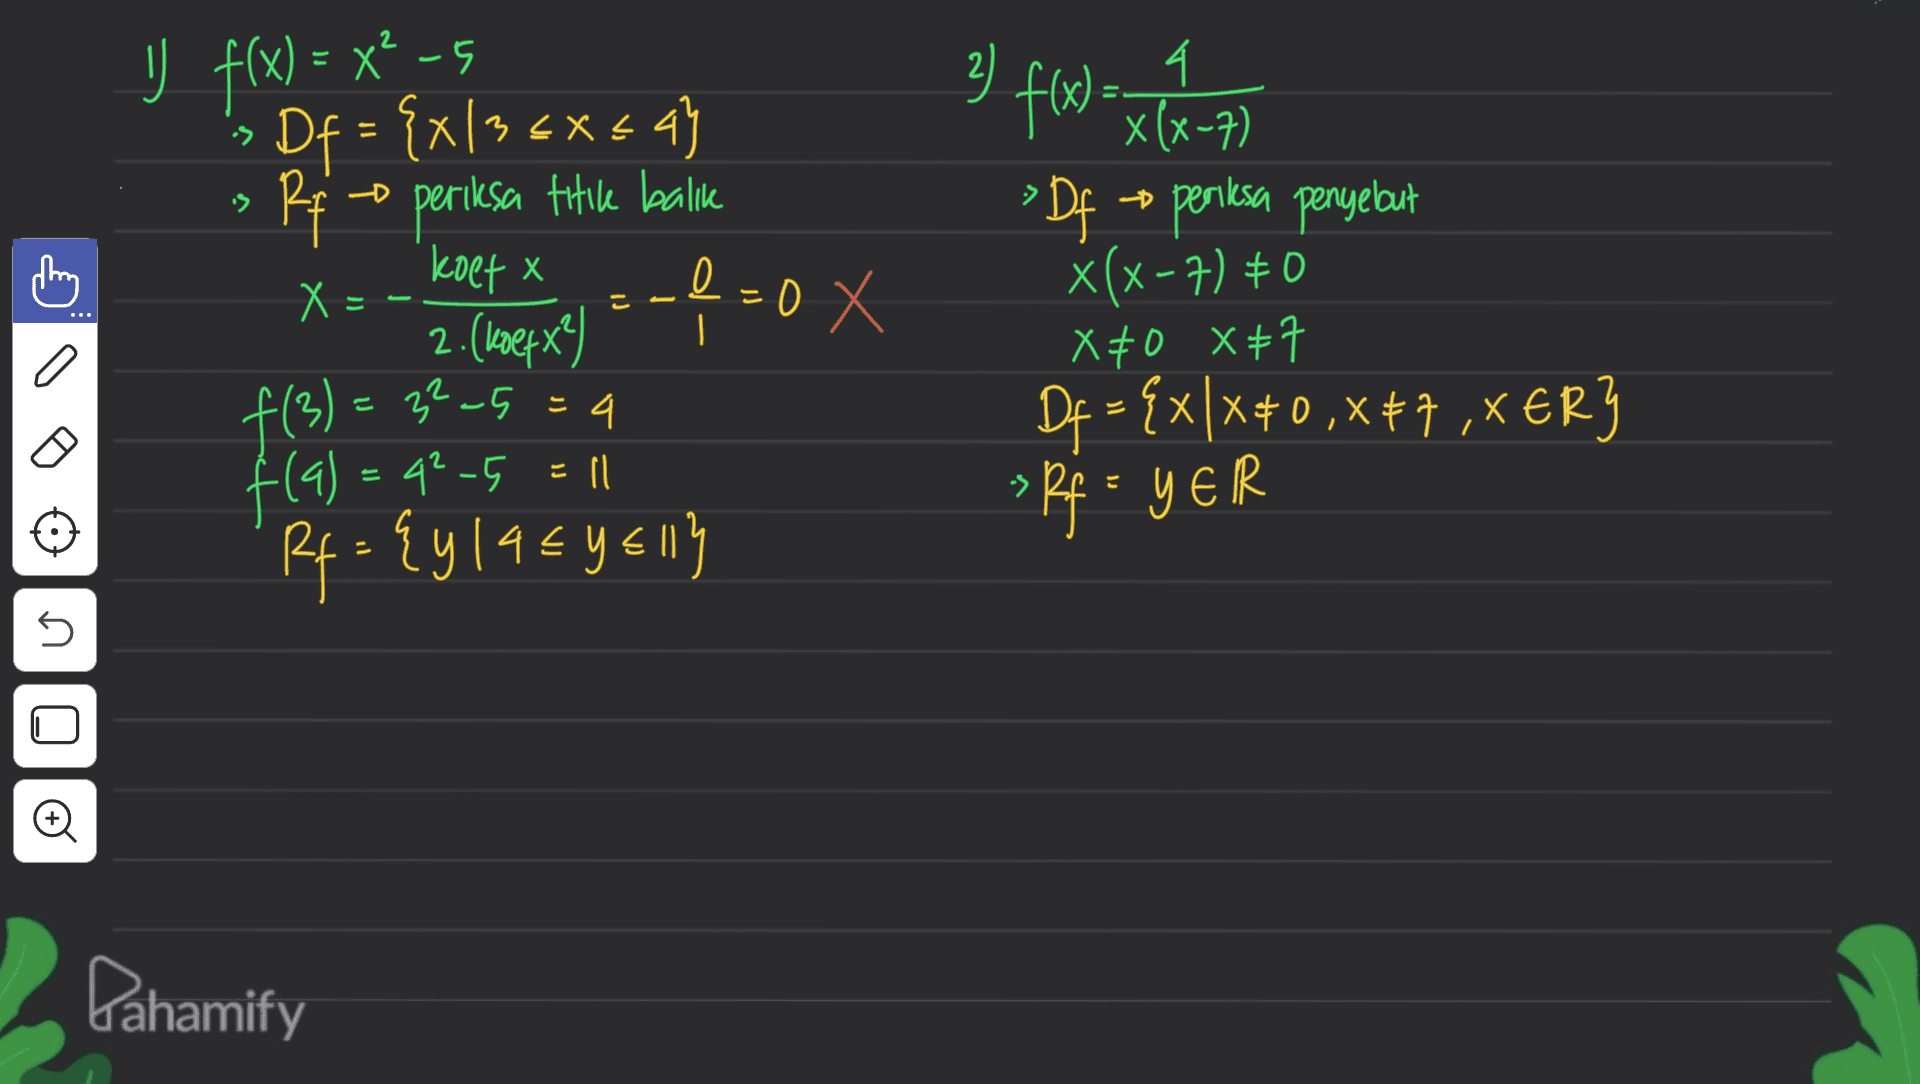 1) f(x) = x² - 5
-> Df = {x|3 ≤ x ≤ 4}
-> Rf → periksa titik balik
x = - koef x / 2.(koef x²) = - 0/1 = 0 X
f(3) = 3² - 5 = 4
f(4) = 4² - 5 = 11
Rf = {y|4 ≤ y ≤ 11}
2) f(x) = 4 / x(x-7)
-> Df → periksa penyebut
x(x-7) ≠ 0
x ≠ 0 x ≠ 7
Df = {x|x≠0, x≠7, x ∈ R}
-> Rf = y ∈ R
Pahamify